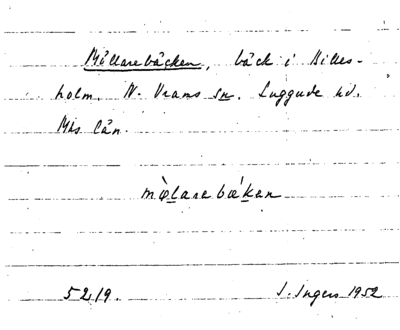 Möllarebäcken, bäck i Billes-
holm. N. Vrams sn. Luggude hd.
Mhs län.
mœ̀larebœ́kan
5219. I. Ingers 1952